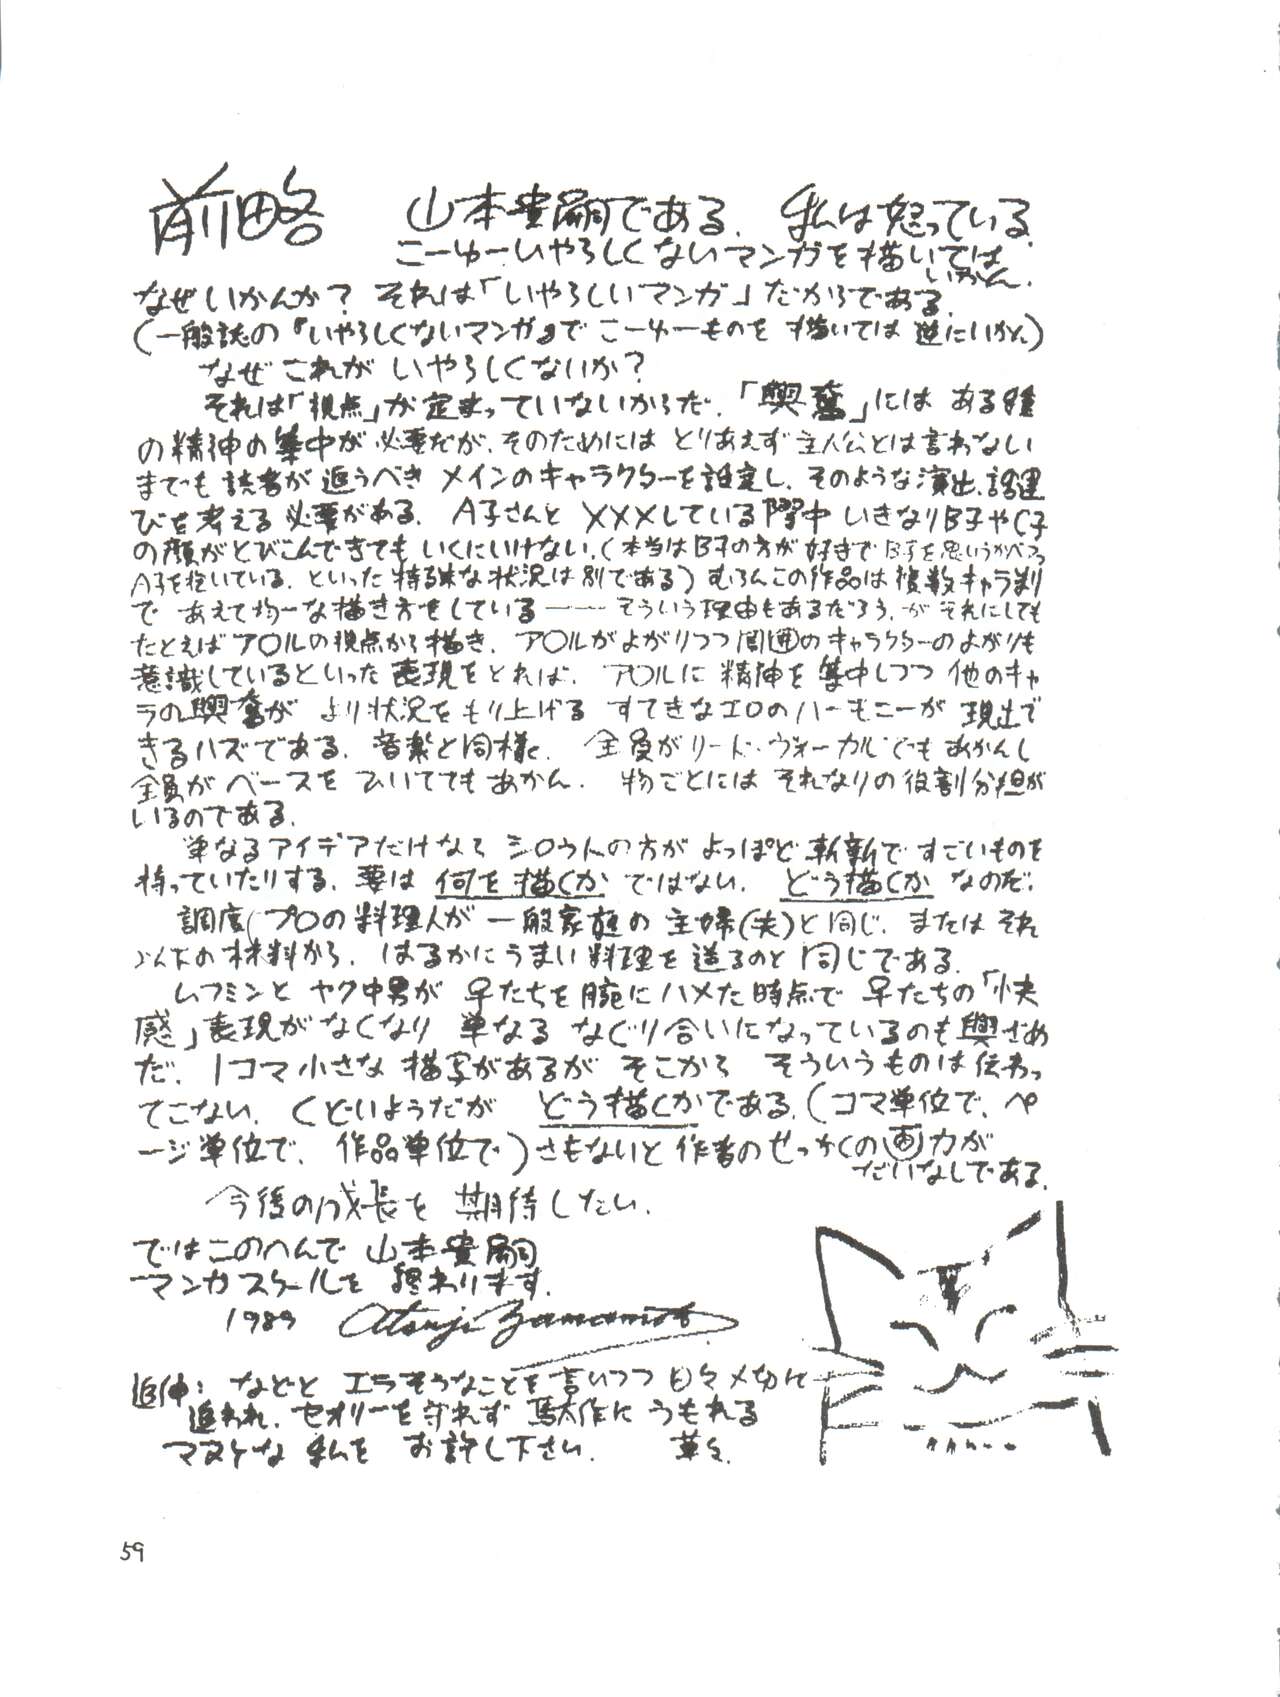 前略　山本貴嗣である．私は怒っている．
こーゆーいやらしくないマンガを描いては
いかん．
なぜいかんか？それは「いやらしいマンガ」だからである．
（一般誌の『いやらしくないマンガ』でこーゆーものを描いては逆にいかん）
なぜこれがいやらしくないか？
それは「視点」が定まっていないからだ．「興奮」にはある種
の精神の集中が必要だが、そのためにはとりあえず主人公とは言わない
までも読者が追うべきメインのキャラクターを設定し、そのような演出、話運
びを考える必要がある．A子さんと×××している際中いきなりB子やC子
の顔がとびこんできてもいくにいけない．（本当はB子の方が好きでB子を思いうかべつつ
A子を抱いている．といった特殊な状況は別である）むろんこの作品は複数キャラ判
であえて均一な描き方をしている——そういう理由もあるだろう．がそれにしても
たとえばア〇ルの視点から描き、ア〇ルがよがりつつ周囲のキャラクターのよがりも
意識しているといった表現をとれば、ア〇ルに精神を集中しつつ他のキャ
ラの興奮がより状況をもり上げるすてきなエロのハーモニーが現出で
きるハズである．音楽と同様に全員がリード・ヴォーカルでもあかんし
全員がベースをひいててもあかん．物ごとにはそれなりの役割分担が
いるのである．
単なるアイデアだけならシロウトの方がよっぽど斬新ですごいものを
持っていたりする．要は何を描くかではない．どう描くかなのだ．
調度プロの料理人が一般家庭の主婦（夫）と同じ、またはそれ
以下の材料から、はるかにうまい料理を造るのと同じである．
ムフミンとヤク中男が早たちを腕にハメた時点で早たちの「快
感」表現がなくなり単なるなぐり合いになっているのも興ざめ
だ．1コマ小さな描写があるがそこからそういうものは伝わっ
てこない．くどいようだがどう描くかである．（コマ単位で、ペ
ージ単位で、作品単位で）さもないと作者のせっかくの画力が
だいなしである．
今後の成長を期待したい．
ではこのへんで山本貴嗣
マンガスクールを終わります．
1989 Atsuji Yamamoto
追伸：などとエラそうなことを言いつつ日々〆切に
追われ、セオリーを守れず駄作にうもれる
マヌケな私をお許し下さい．草々．
59